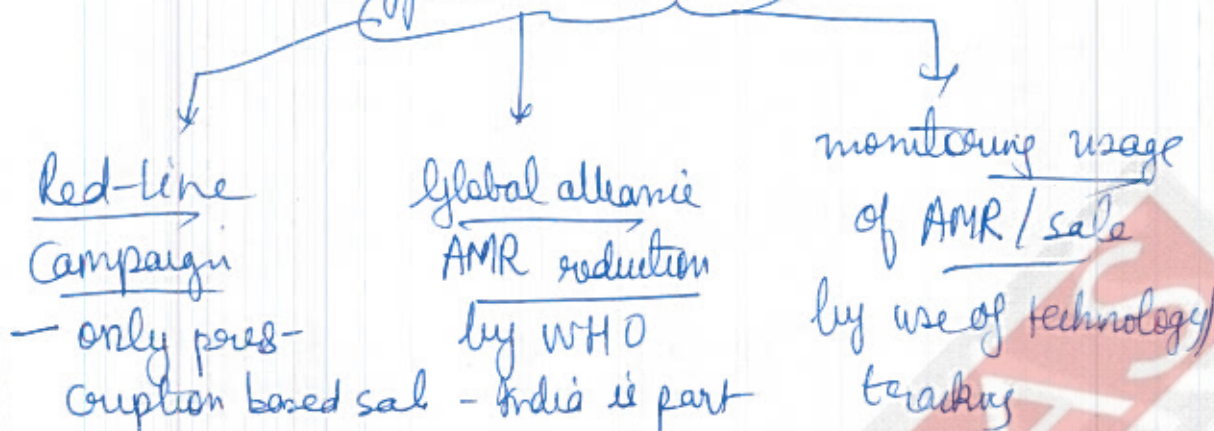 Red-Line
Campaign
- only pres-
cruption based sal
Global alliance
AMR reduction
by WHO
- India is part
monitoring usage
of AMR / sale
by use of technology/
tracking